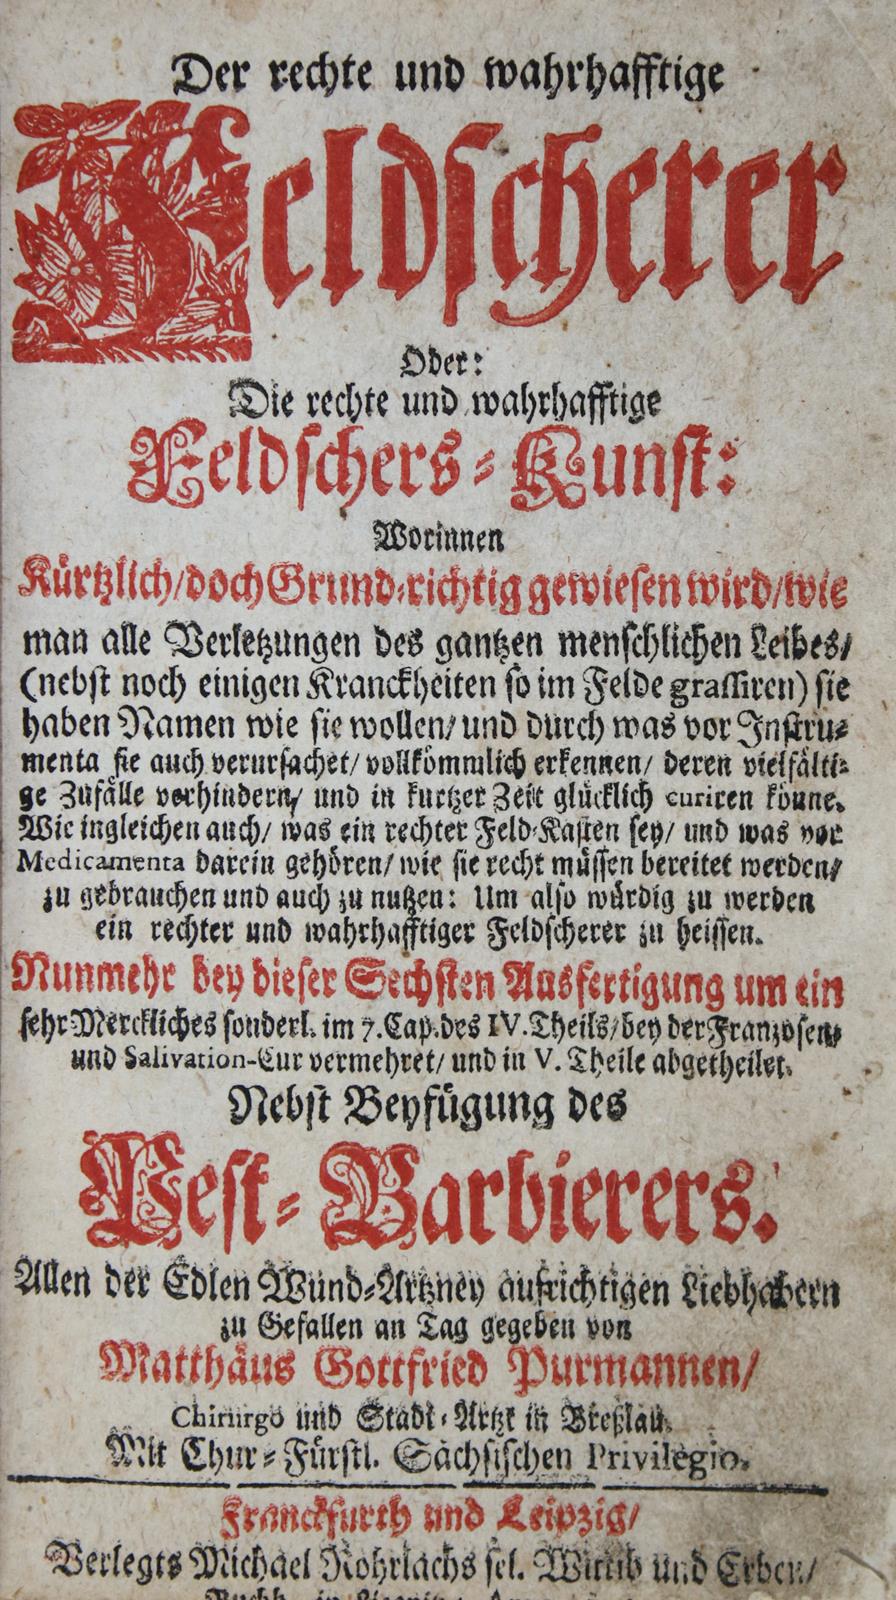 Der rechte und wahrhafftige
Feldscherer
Oder:
Die rechte und wahrhafftige
Feldschers-Kunst:
Worinnen
Kürtzlich/doch Grund-richtig gewiesen wird/wie
man alle Verletzungen des gantzen menschlichen Leibes/
(nebst noch einigen Kranckheiten so im Felde grassiren) sie
haben Namen wie sie wollen/ und durch was vor Instru-
menta sie auch verursachet/ vollkömmlich erkennen/ deren vielfälti-
ge Zufälle verhindern/ und in kurtzer Zeit glücklich curiren könne.
Wie ingleichen auch/ was ein rechter Feld-Kasten sey/ und was vor
Medicamenta darein gehören/ wie sie recht müssen bereitet werden/
zu gebrauchen und auch zu nutzen: Um also würdig zu werden
ein rechter und wahrhafftiger Feldscherer zu heissen.
Nunmehr bey dieser Sechsten Ausfertigung um ein
sehr Merckliches sonderl. im 7. Cap. des IV. Theils/ bey der Franzosen-
und Salivation-Cur vermehret/ und in V. Theile abgetheilet.
Nebst Beyfügung des
Pest-Barbierers.
Allen der Edlen Wund-Artzney aufrichtigen Liebhabern
zu Gefallen an Tag gegeben von
Matthäus Gottfried Purmannen/
Chirurgo und Stadt-Artzt in Breßlau.
Mit Chur-Fürstl. Sächsischen Privilegio.
Franckfurth und Leipzig/
Verlegts Michael Rohrlachs sel. Wittib und Erben/